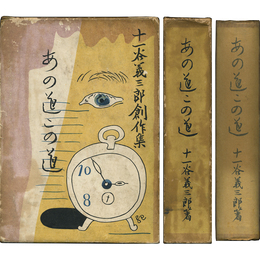 十一谷義三郎創作集
あの道この道
10
8
1
あの道この道
十一谷義三郎著
あの道この道
十一谷義三郎著